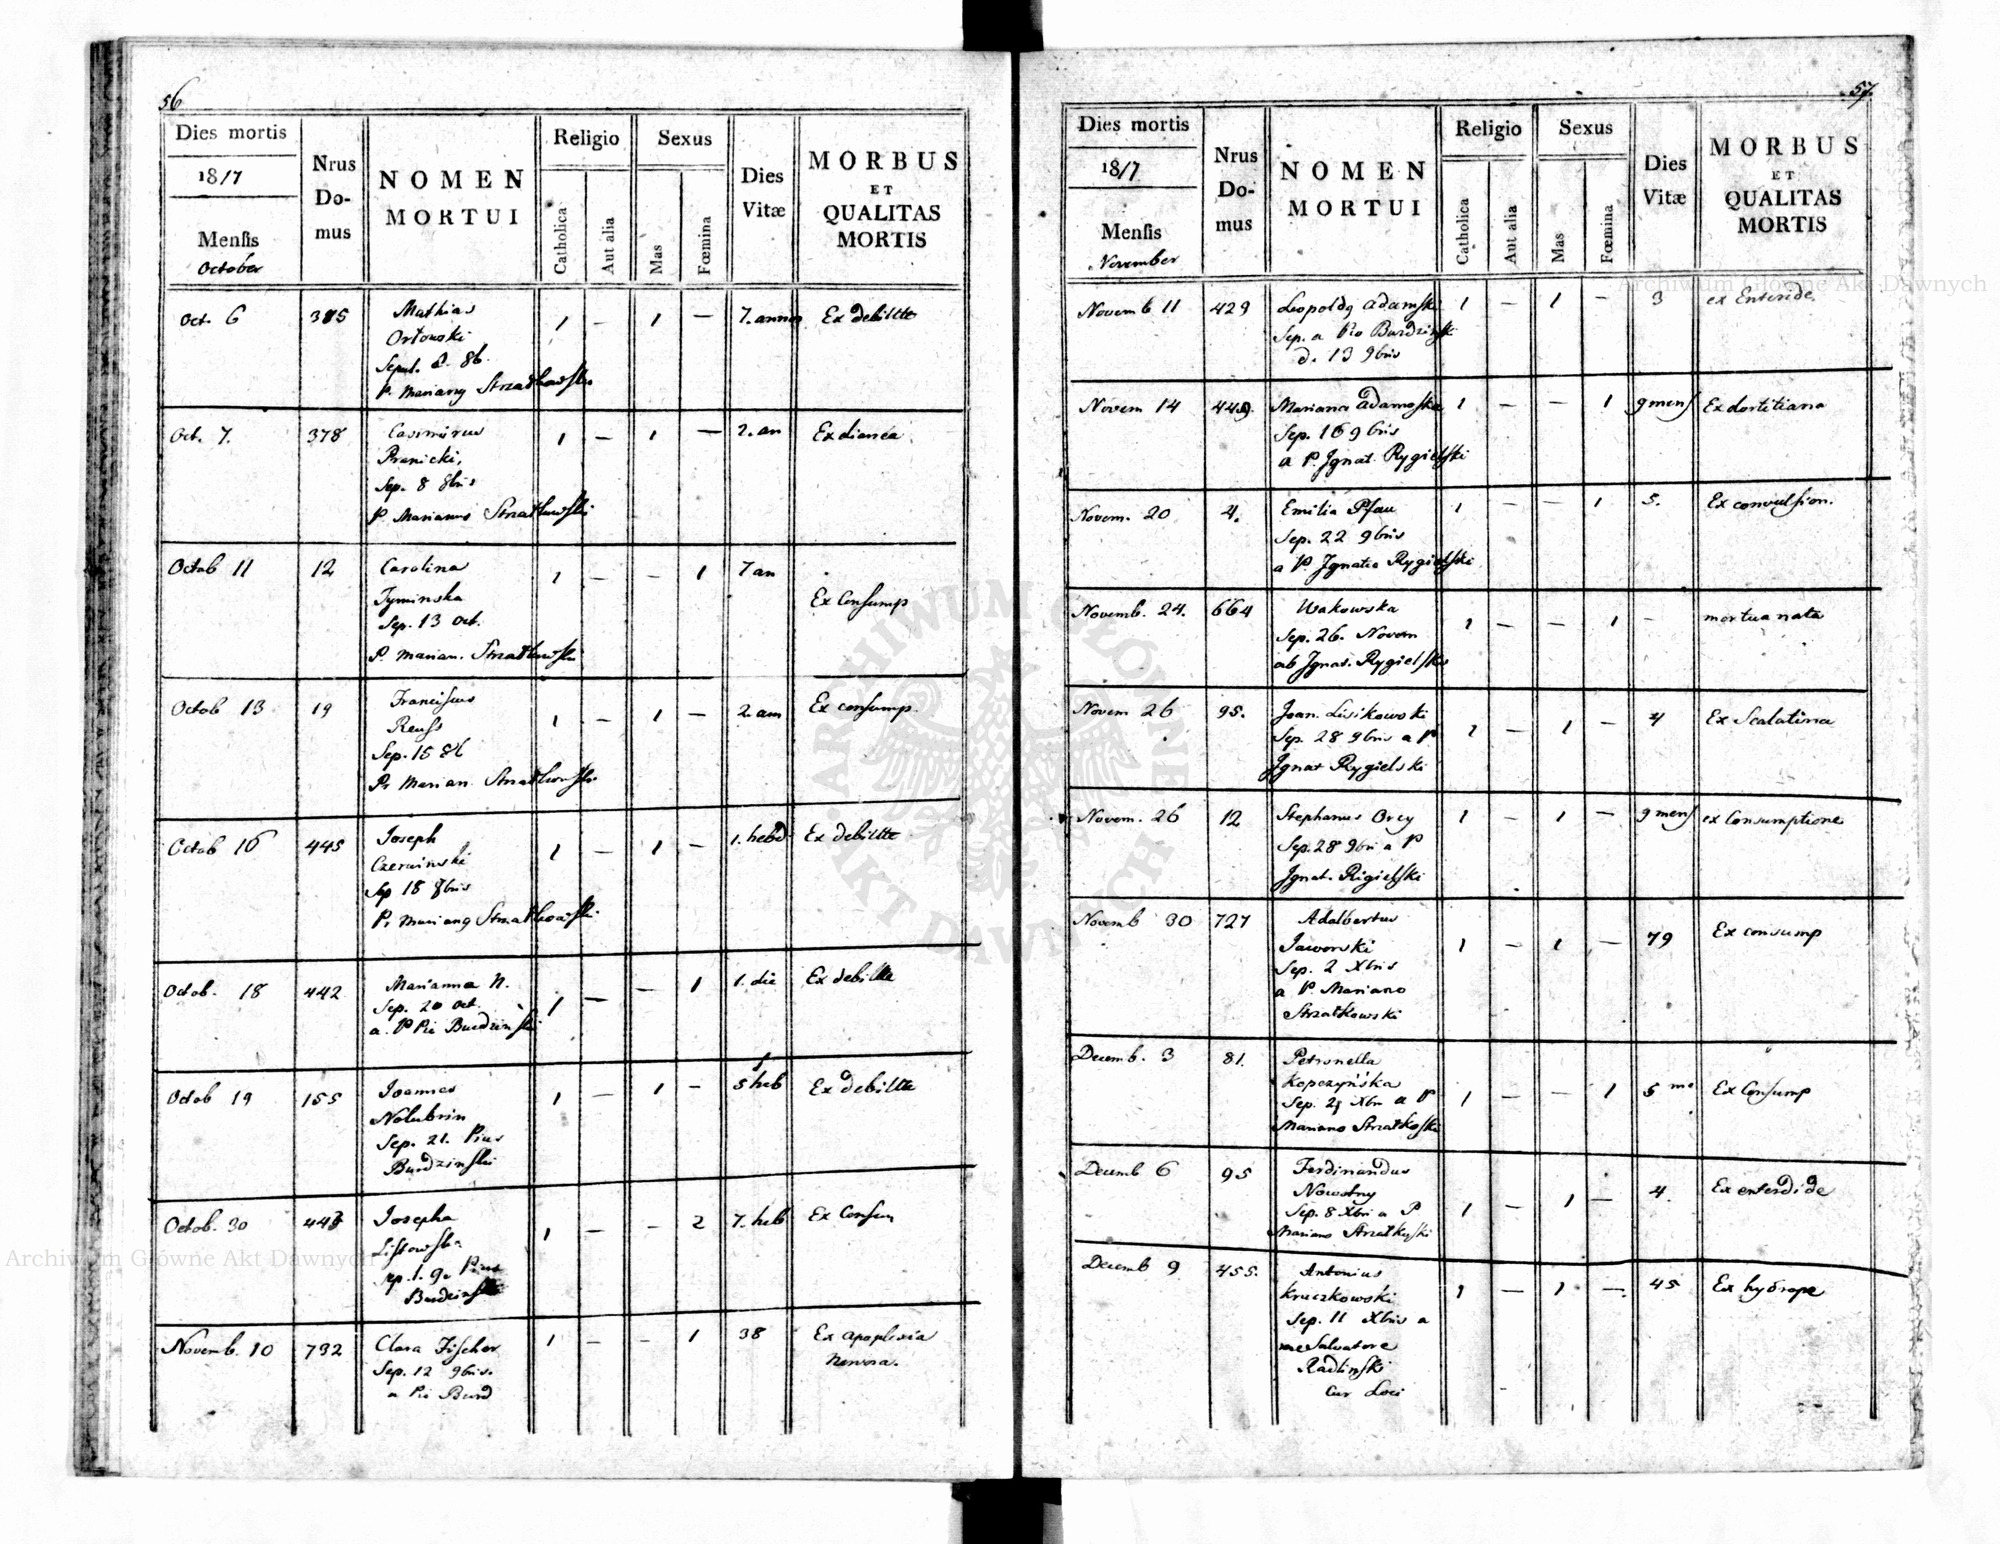 56
Dies mortis
1817
Mensis
October
Nrus
Do-
mus
NOMEN
MORTUI
Religio
Catholica
Aut alia
Sexus
Mas
Fœmina
Dies
Vitæ
MORBUS
ET
QUALITAS
MORTIS
Oct. 6 385 Mathias 1 — 1 — 7. annor Ex debilitte
Ortowski
Sepul. d. 8b
P. Mariany Strzatkowski
Oct. 7. 378 Casimirus 1 — 1 — 2. an Ex diarréa
Pranicki,
Sep. 8 8bris
P. Marianus Strzatkowski
Octob 11 12 Carolina 1 — — 1 7 an Ex Consump
Tyminska
Sep. 13 Oct.
P. Marian. Strzatkowski
Octob 13 19 Franciscus 1 — 1 — 2. ann Ex consump.
Reuss
Sep. 15 8b
P. Marian Strzatkowski
Octob 16 445 Joseph 1 — 1 — 1. hebd Ex debilitte
Czerwinski
Sep 18 8bris
P. Mariany Strzatkowski
Octob. 18 442 Marianna N. 1 — — 1 1. die Ex debilitte
Sep. 20 Oct.
a. P Pio Burdzinski
Octob 19 155 Joannes 1 — 1 — 5 heb Ex debilitte
Nolubrin
Sep. 21. Pius
Burdzinski
Octob. 30 443 Josepha 1 — — 2 7. heb Ex Consum
Listowska
Sep. 1. 9. Pius
Burdzinski
Novemb. 10 732 Clara Fischer 1 — — 1 38 Ex apoplexia
Sep. 12 9bris. nervosa.
a Pio Burd
57.
Dies mortis
1817
Mensis
November
Nrus
Do-
mus
NOMEN
MORTUI
Religio
Catholica
Aut alia
Sexus
Mas
Fœmina
Dies
Vitæ
MORBUS
ET
QUALITAS
MORTIS
Novemb 11 429 Leopoldq Adamski 1 — 1 — 3 ex Enteride
Sep. a Pio Burdzinsk
d. 13 9bris
Novem 14 449. Mariana Adamoska 1 — — 1 9 mens Ex dortitiana
Sep. 16 9bris
a P. Jgnat. Rygielski
Novem. 20 4. Emilia Pfau 1 — — 1 5. Ex convulsion.
Sep. 22 9bris
a P. Jgnatio Rygielski
Novemb. 24. 664 Wakowska 1 — — 1 — mortua nata
Sep. 26. Novem
ab Jgnat. Rygielski
Novem 26 95. Joan. Lisikowski 1 — 1 — 4 Ex Scalatina
Sep. 28 9bris a P
Jgnat Rygielski
Novem. 26 12 Stephanus Orcy 1 — 1 — 9 mens ex Consumptione
Sep. 28 9bri a P
Jgnat. Rigielski
Novemb 30 727 Adalbertus 1 — 1 — 79 Ex consump
Jaworski
Sep. 2 Xbris
a P. Mariano
Strzatkowski
Decemb. 3 81. Petronella 1 — — 1 5 me Ex Consump
Kopczyńska
Sep. Xbr a P
Mariano Strzatkoski
Decemb 6 95 Ferdinandus 1 — 1 — 4. Ex enterdide
Nowotny
Sep. 8 Xbri a P
Mariano Strzatkoski
Decemb 9 455. Antonius 1 — 1 — 45 Ex hydrope
Kruczkowski
Sep. 11 Xbris a
me Salvatore
Radlinski
Cur Loci
Archiwum Główne Akt Dawnych
Archiwum Główne Akt Dawnych
ARCHIWUM GŁÓWNE
AKT DAWNYCH